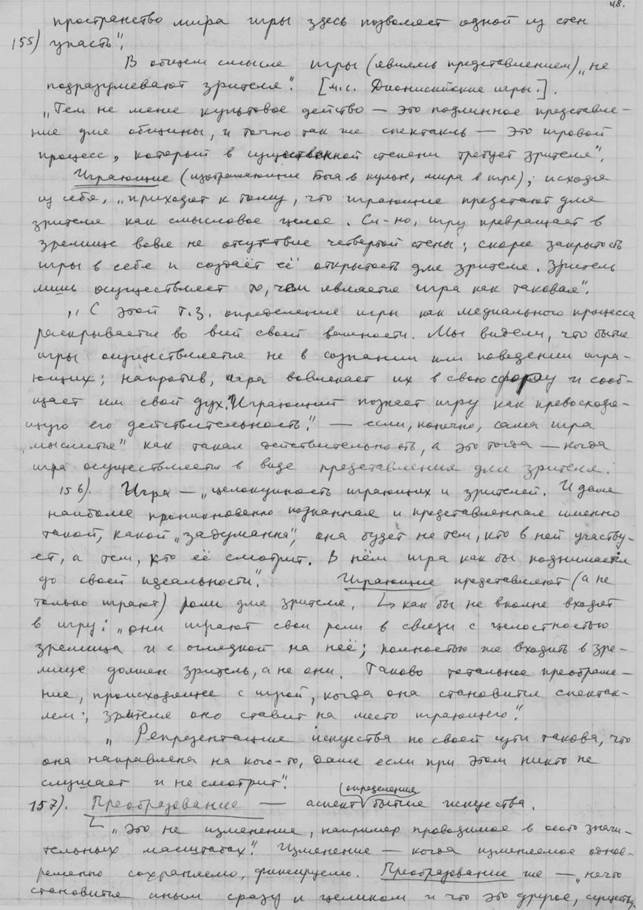 48.
пространство мира игры здесь позволяет одной из стен
155) упасть".
В общем смысле игры (являясь представлением) „не
подразумевают зрителя". [м.с. Дионисийские игры.].
„Тем не менее культовое действо — это подлинное представле-
ние для общины, и точно так же спектакль — это игровой
процесс, который в существенной степени требует зрителя".
Играющие (изображающие Бога в культе, мира в игре), исходя
из себя, „приходят к тому, что играющие предстают для
зрителя как смысловое целое. Сл-но, игру превращает в
зрелище вовсе не отсутствие четвёртой стены; скорее закрытость
игры в себе и создаёт её открытость для зрителя. Зритель
лишь осуществляет то, чем является игра как таковая".
„С этой т.з. определение игры как медиального процесса
раскрывается во всей своей важности. Мы видели, что бытие
игры осуществляется не в сознании или поведении игра-
ющих; напротив, игра вовлекает их в свою сферу и сооб-
щает им свой дух. Играющий познаёт игру как превосходя-
щую его действительность". — если, конечно, сама игра
„мыслится" как такая действительность, а это тогда — когда
игра осуществляется в виде представления для зрителя.
156). Игра — „целокупность играющих и зрителей. И даже
наиболее проникновенно познанная и представленная именно
такой, какой „задумана", она будет не тем, кто в ней участву-
ет, а тем, кто её смотрит. В нём игра как бы поднимается
до своей идеальности". Играющие представляют (а не
только играют) роли для зрителя, как бы не вполне входят
в игру: „они играют свои роли в связи с целостностью
зрелища и с оглядкой на неё; полностью же входить в зре-
лище должен зритель, а не они. Таково тотальное преображе-
ние, происходящее с игрой, когда она становится спектак-
лем; зрителя оно ставит на место играющего".
„Репрезентация искусства по своей сути такова, что
она направлена на кого-то, даже если при этом никто не
слушает и не смотрит".
определения
157). Преобразование — аспект бытия искусства.
„Это не изменение, например проводимое в особо значи-
тельных масштабах". Изменение — когда изменяемое однов-
ременно сохраняемо, фиксируемо. Преобразование же — „нечто
становится иным сразу и целиком и что это другое, существу-